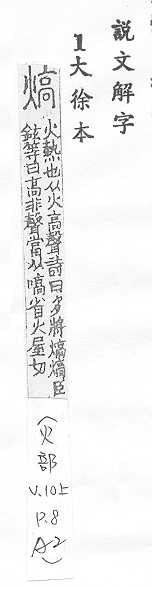 説文解字
1大徐本
熇
火熱也从火高聲詩曰多將熇熇臣
鉉等曰高非聲當从嗃省火屋切
(火
部
V.10上
P.8
A2)